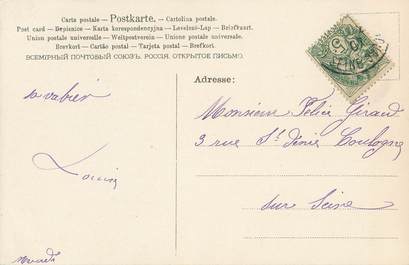 Carte postale – Postkarte. – Cartolina postale
Post card – Dopisnice – Karta korespondencyjna – Levelező-Lap – Briefkaart.
Union postale universelle – Weltpostverein – Unione postale universale.
Brevkort – Cartão postal – Tarjeta postal – Brefkort.
ВСЕМІРНЫЙ ПОЧТОВЫЙ СОЮЗЪ. РОССІЯ. ОТКРЫТОЕ ПИСЬМО.
Adresse:
Monsieur Félix Giraud
3 rue St Denis Boulogne
sur Seine
Louis